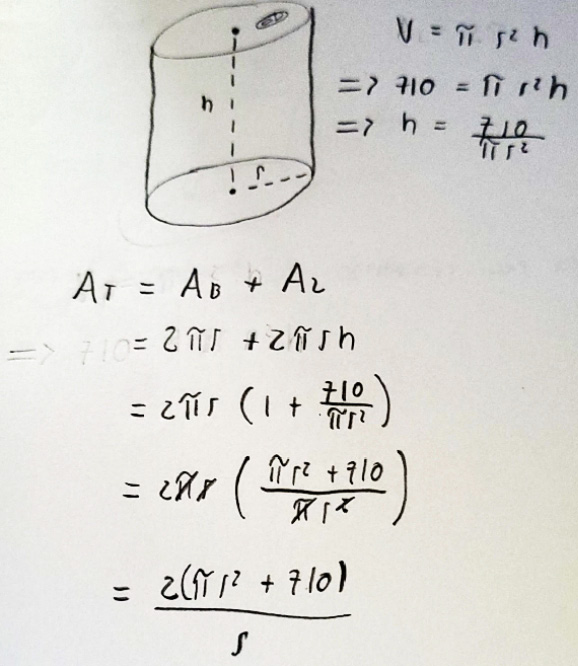 V = π r² h
=> 710 = π r² h
=> h = 710/πr²
h
r
A_T = A_B + A_L
= 2πr + 2πrh
= 2πr (1 + 710/πr²)
= 2πr (πr² + 710/πr²)
= 2(πr² + 710)/r